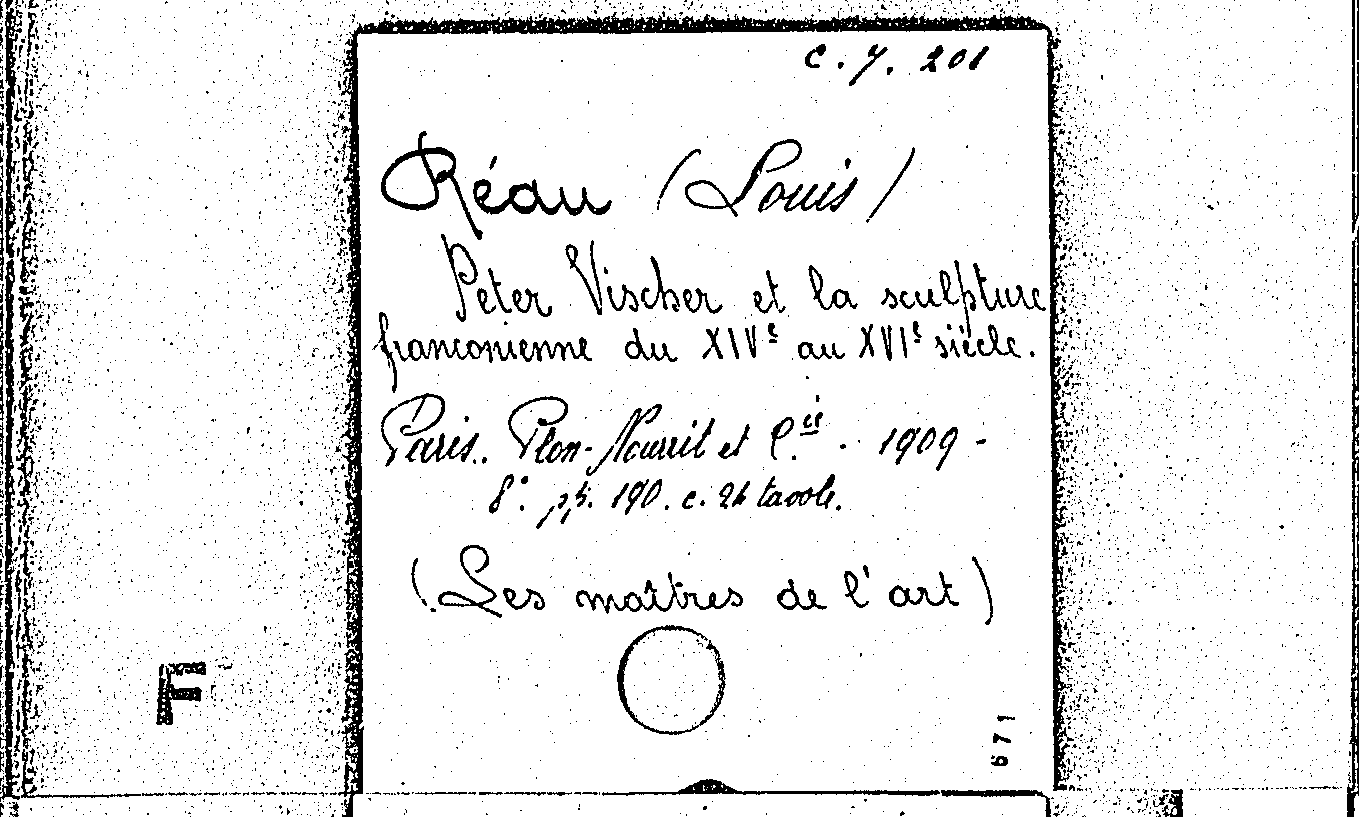 C. 7. 201
Réau (Louis)
Peter Vischer et la sculpture
franconienne du XIVe au XVIe siècle.
Paris. Plon-Nourrit et C.ie. 1909 -
8°. pp. 190. c. 24 tavole.
(Les maîtres de l'art)
F
671